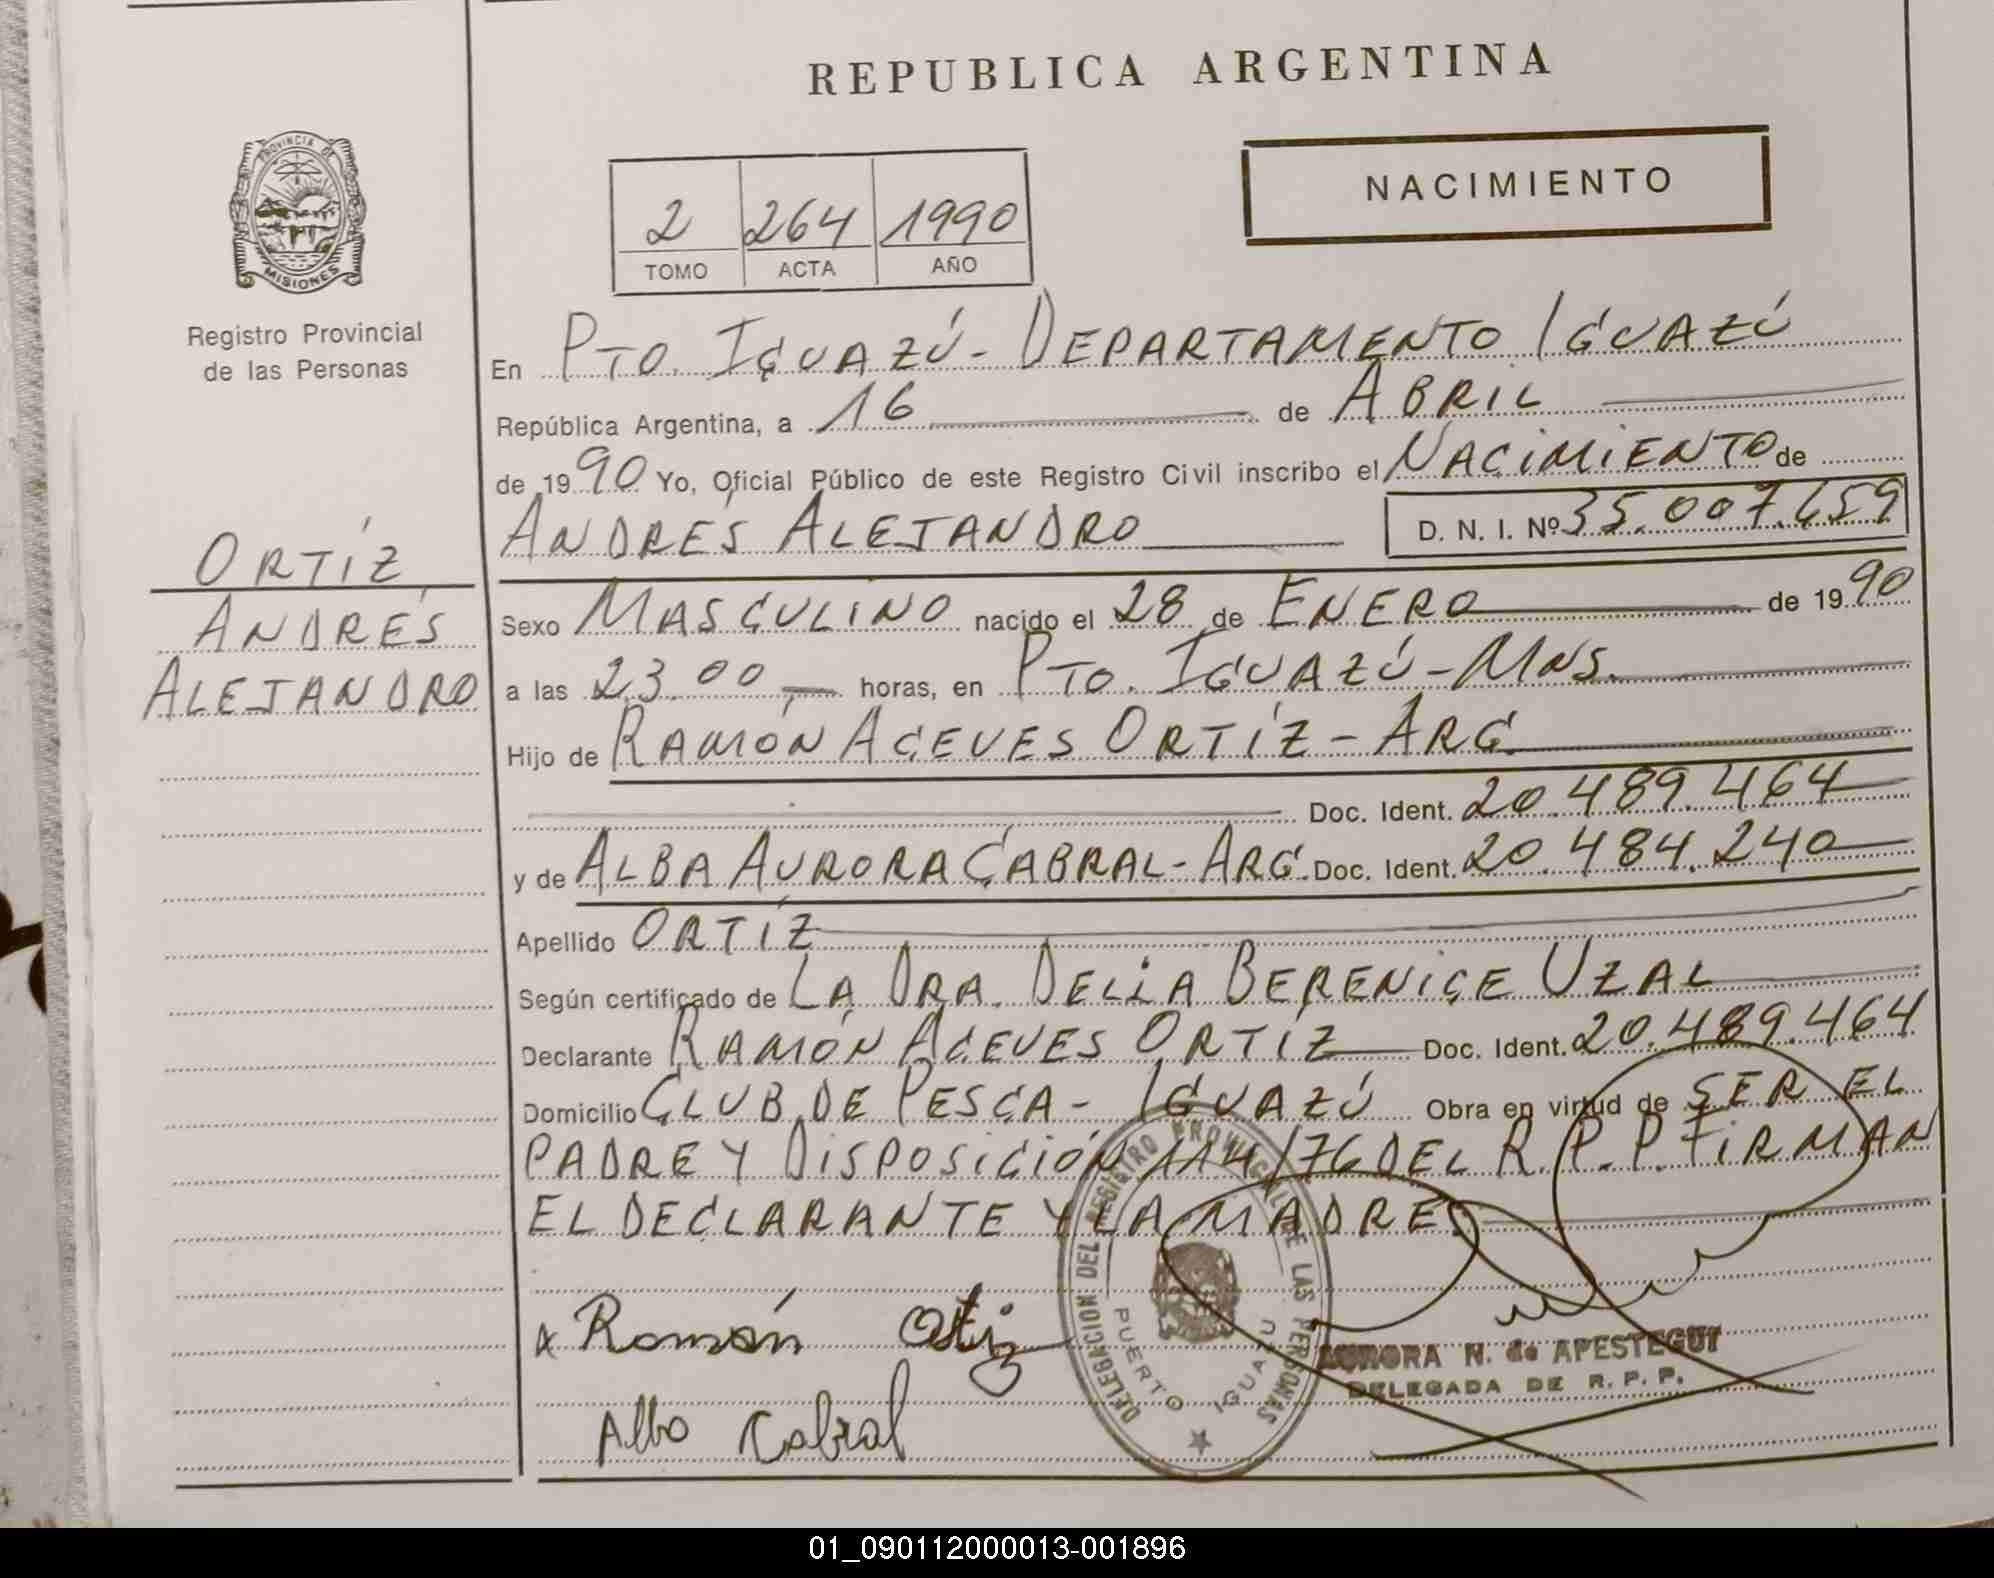 REPUBLICA ARGENTINA
PROVINCIA DE
MISIONES
Registro Provincial
de las Personas
NACIMIENTO
2 264 1990
TOMO ACTA AÑO
En PTO. IGUAZÚ - DEPARTAMENTO IGUAZÚ
República Argentina, a 16 de ABRIL
de 1990 Yo, Oficial Público de este Registro Civil inscribo el NACIMIENTO de
ANDRÉS ALEJANDRO D. N. I. Nº 35.007.659
ORTÍZ
ANDRÉS
ALEJANDRO
Sexo MASCULINO nacido el 28 de ENERO de 1990
a las 23.00 horas, en PTO. IGUAZÚ - MNS.
Hijo de RAMÓN ACEVES ORTÍZ - ARG.
Doc. Ident. 20.489.464
y de ALBA AURORA CABRAL - ARG. Doc. Ident. 20.484.240
Apellido ORTÍZ
Según certificado de LA DRA. DELIA BERENICE UZAL
Declarante RAMÓN ACEVES ORTÍZ Doc. Ident. 20.489.464
Domicilio CLUB DE PESCA - IGUAZÚ Obra en virtud de SER EL
PADRE Y DISPOSICIÓN 114/76 DEL R.P.P. FIRMAN
EL DECLARANTE Y LA MADRE
x Ramón Ortiz
Alba Cabral
DELEGACION DEL REGISTRO PROVINCIAL DE LAS PERSONAS
PUERTO IGUAZU
AURORA N. de APESTEGUI
DELEGADA DE R. P. P.
01_090112000013-001896